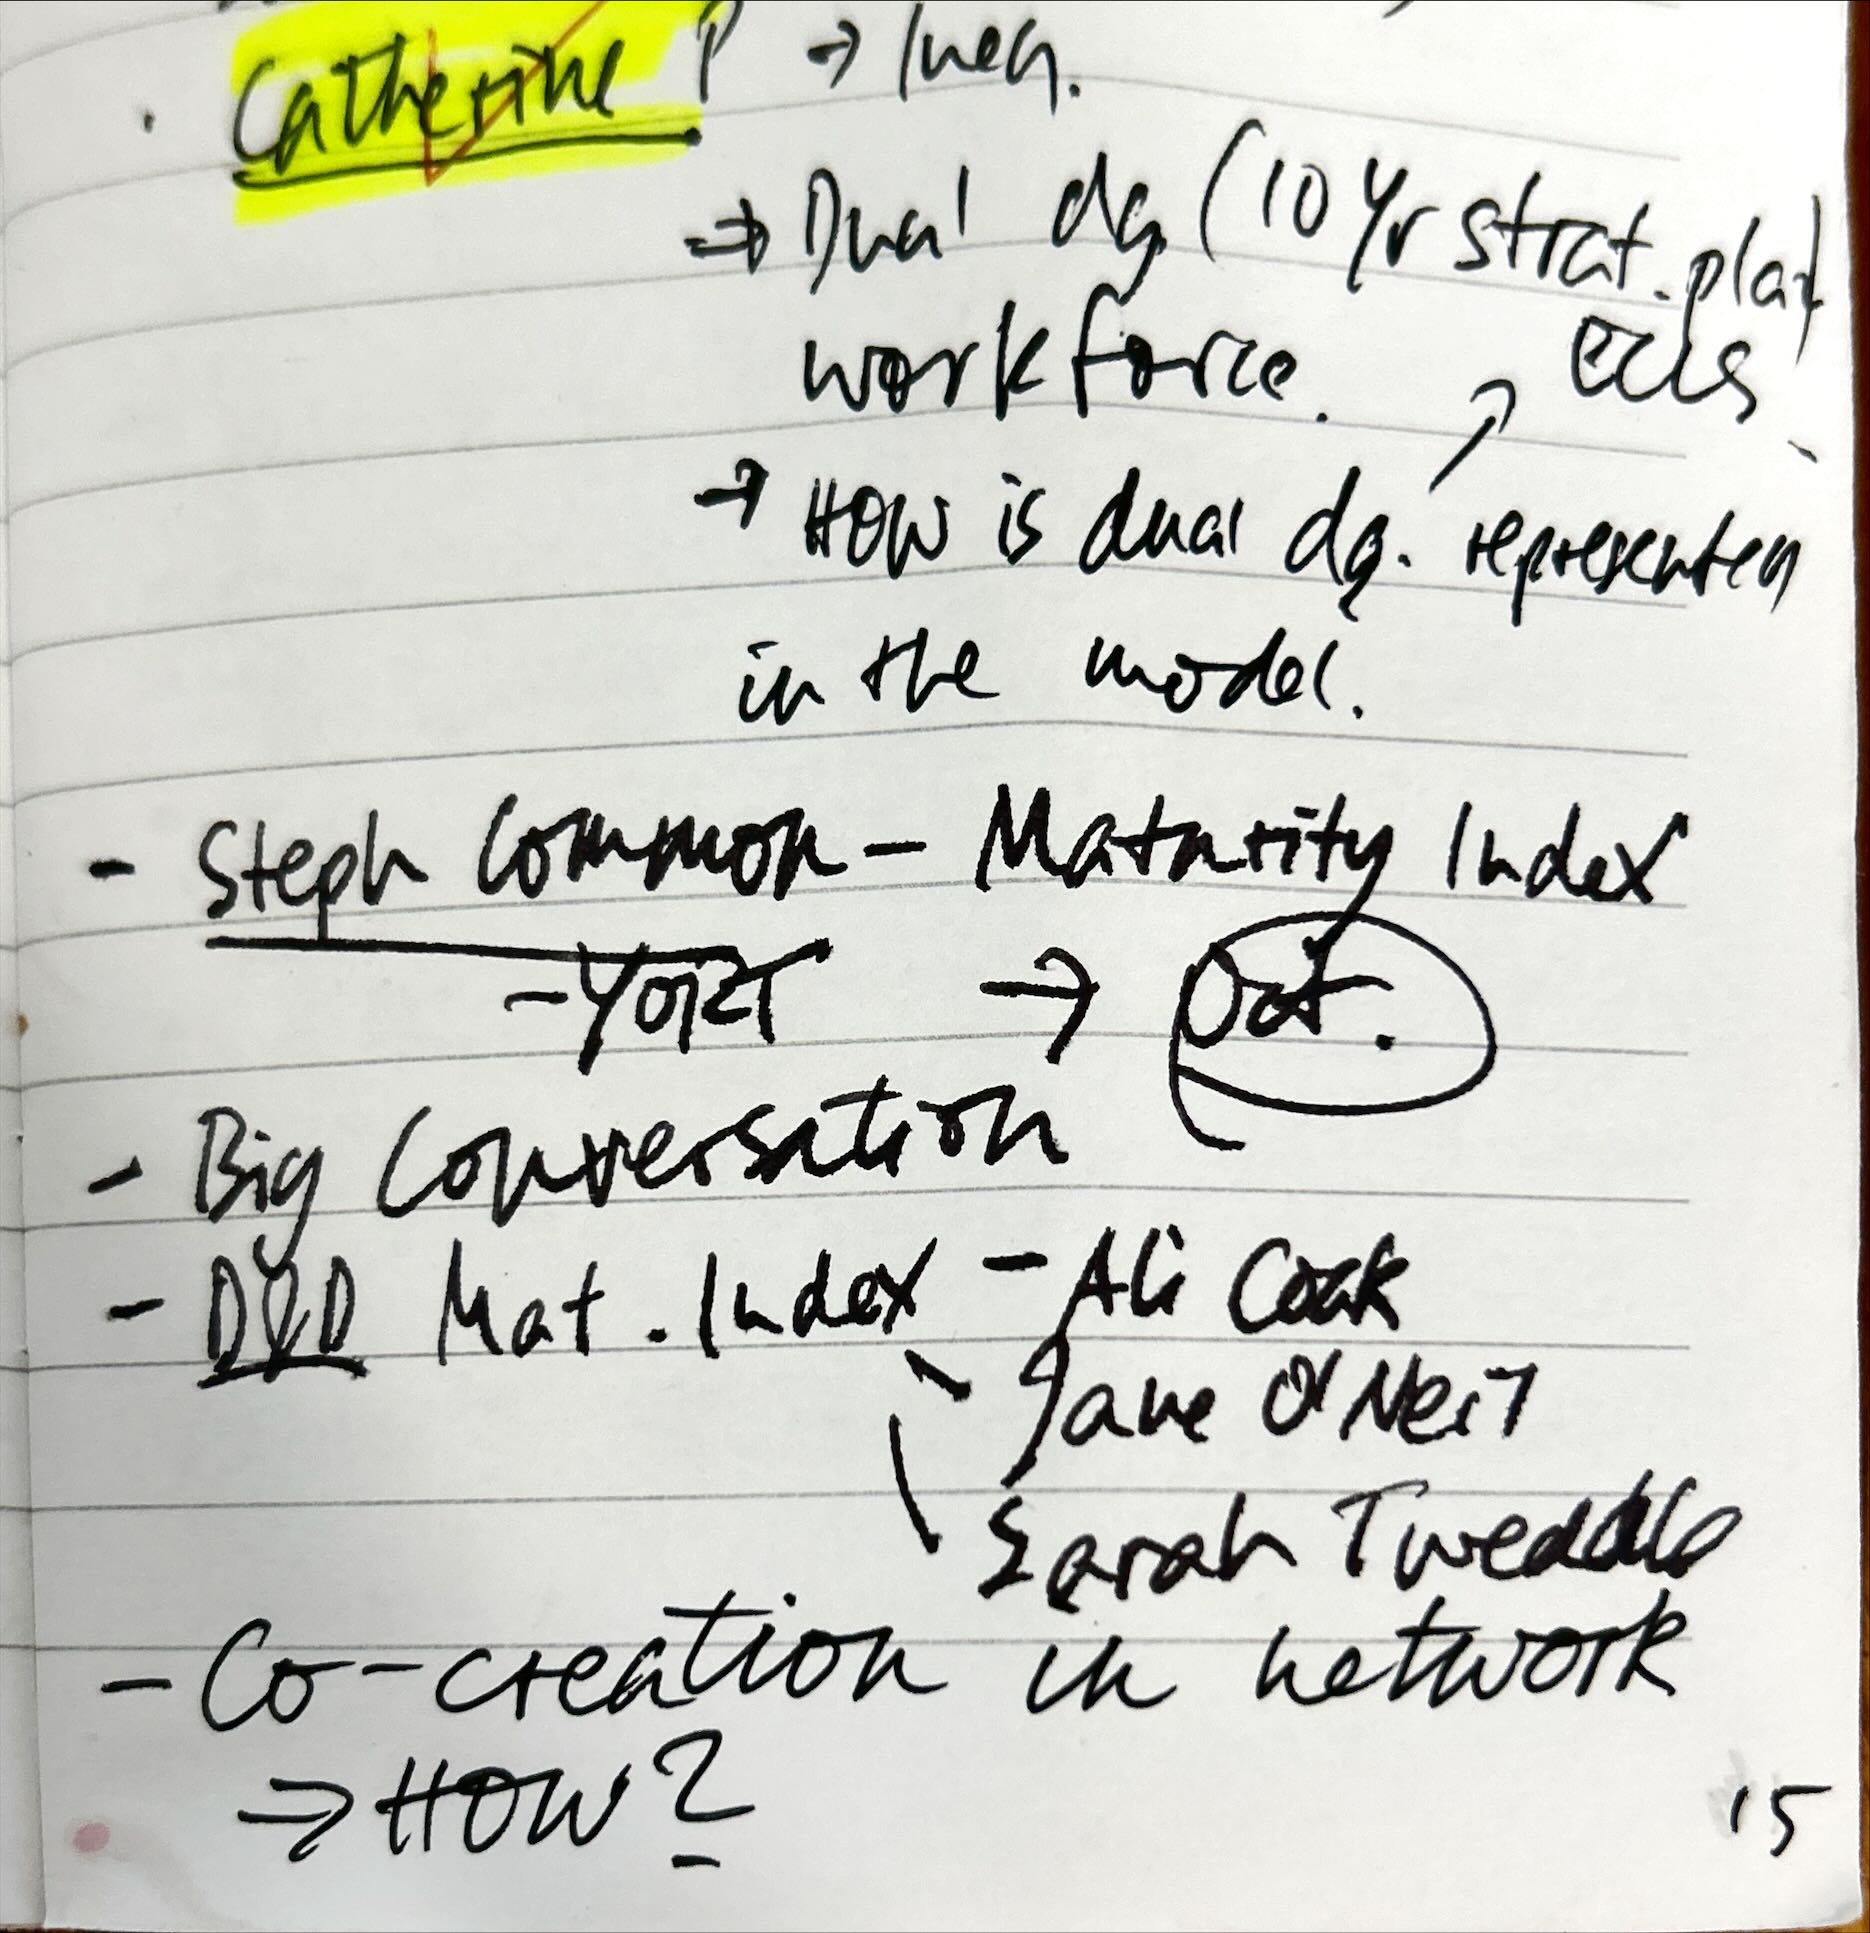 · Catherine P →
⇒ Dual dg. (10 Yr strat. plan)
workforce.
→ HOW is dual dg. represented
in the model.
- Steph Common - Maturity Index
- YORK → Oct.
- Big Conversation
- Mat. Index - Ali Cook
- Jane O'Neil
Sarah Tweddle
- Co-creation in network
⇒ HOW?
15